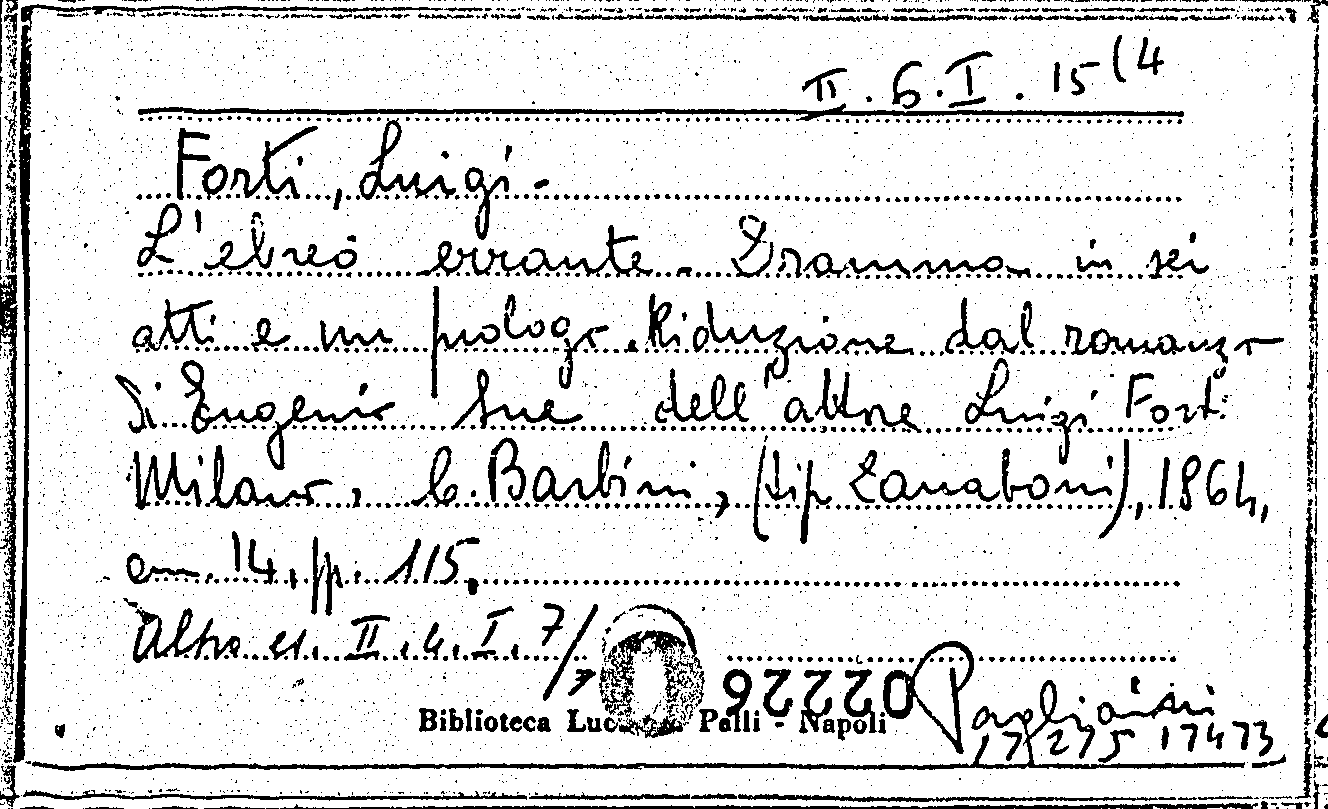 II. 6. I. 15 (4
Forti, Luigi -
L'ebreo errante. Dramma in sei
atti e un prologo. Riduzione dal romanzo
di Eugenio Sue dell'attore Luigi Forti
Milano, C. Barbini, (tip Zanaboni), 1864,
cm. 14, pp. 115,
Altro es. II. 4. I. 7/
Biblioteca Palli - Napoli
022226
17275 17473